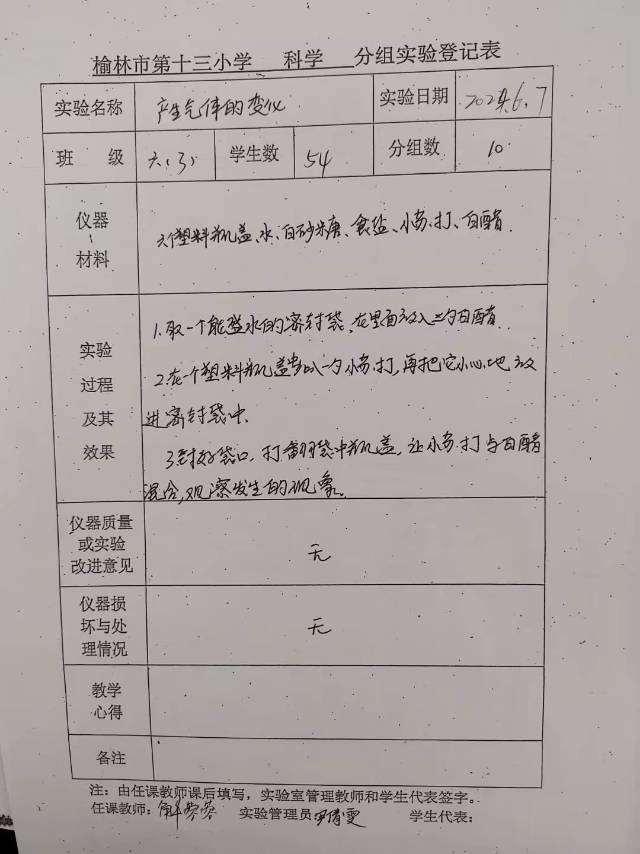 榆林市第十三小学 科学 分组实验登记表
实验名称 产生气体的变化 实验日期 2024.6.7
班 级 六(3) 学生数 54 分组数 10
仪器、材料 六个塑料瓶盖、水、白砂糖、食盐、小苏打、白醋
实验过程及其效果
1.取一个能盛水的密封袋,在里面放入三勺白醋
2.在一个塑料瓶盖中放入一勺小苏打,再把它小心地放
进密封袋中.
3.封好袋口,打翻袋中瓶盖,让小苏打与白醋
混合,观察发生的现象.
仪器质量或实验改进意见 无
仪器损坏与处理情况 无
教学心得
备注
注:由任课教师课后填写,实验室管理教师和学生代表签字。
任课教师: 实验管理员 学生代表: